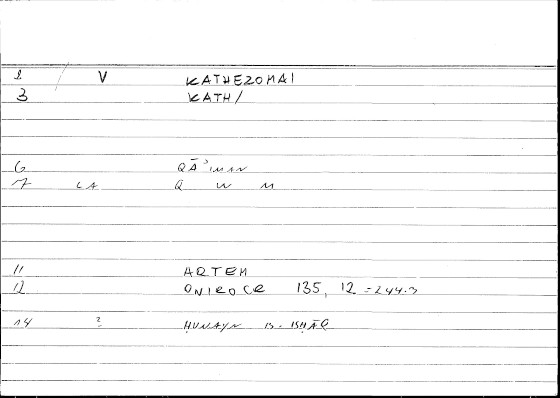 1 V KATHEZOMAI
3 KATH/
6 QĀʾIMAN
7 CA Q W M
11 ARTEM
12 ONIROCR 135, 12 = 244.3
14 ? HUNAYN B. ISHĀQ